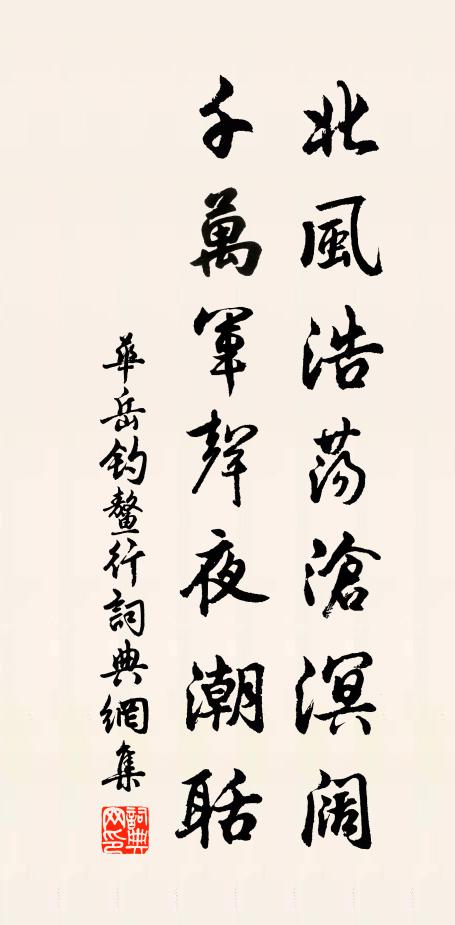 北風浩蕩滄溟闊
千萬軍聲夜潮聒
華岳釣鰲行詞典網集
詞典網印